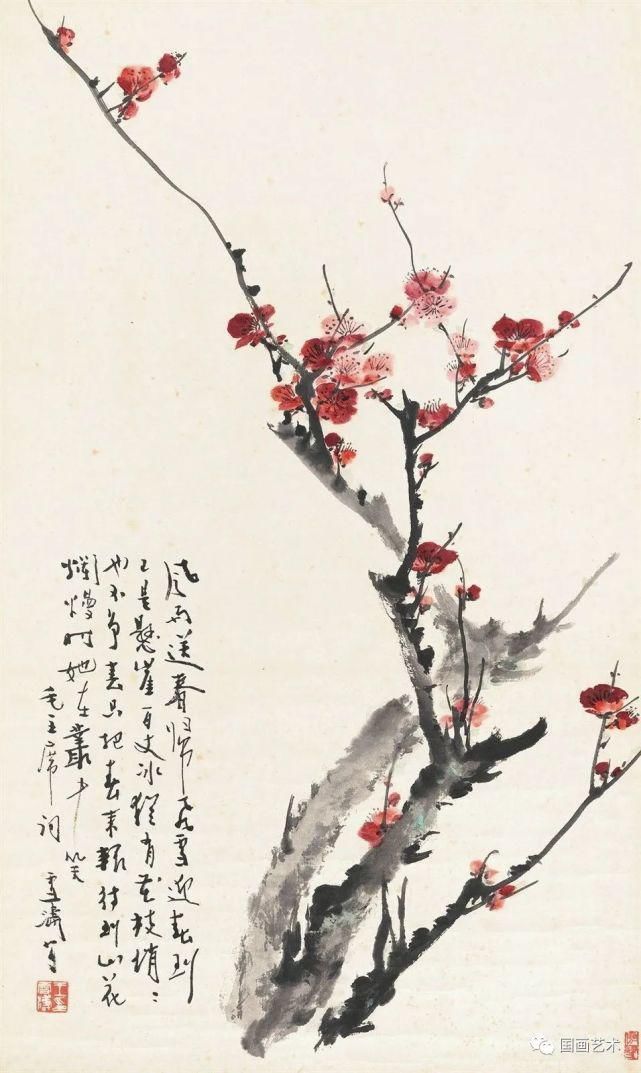 风雨送春归飞雪迎春到
已是懸崖百丈冰猶有花枝俏〻
也不争春只把春来報待到山花
爛熳时她在叢中笑
毛主席词 雪濤
国画艺术